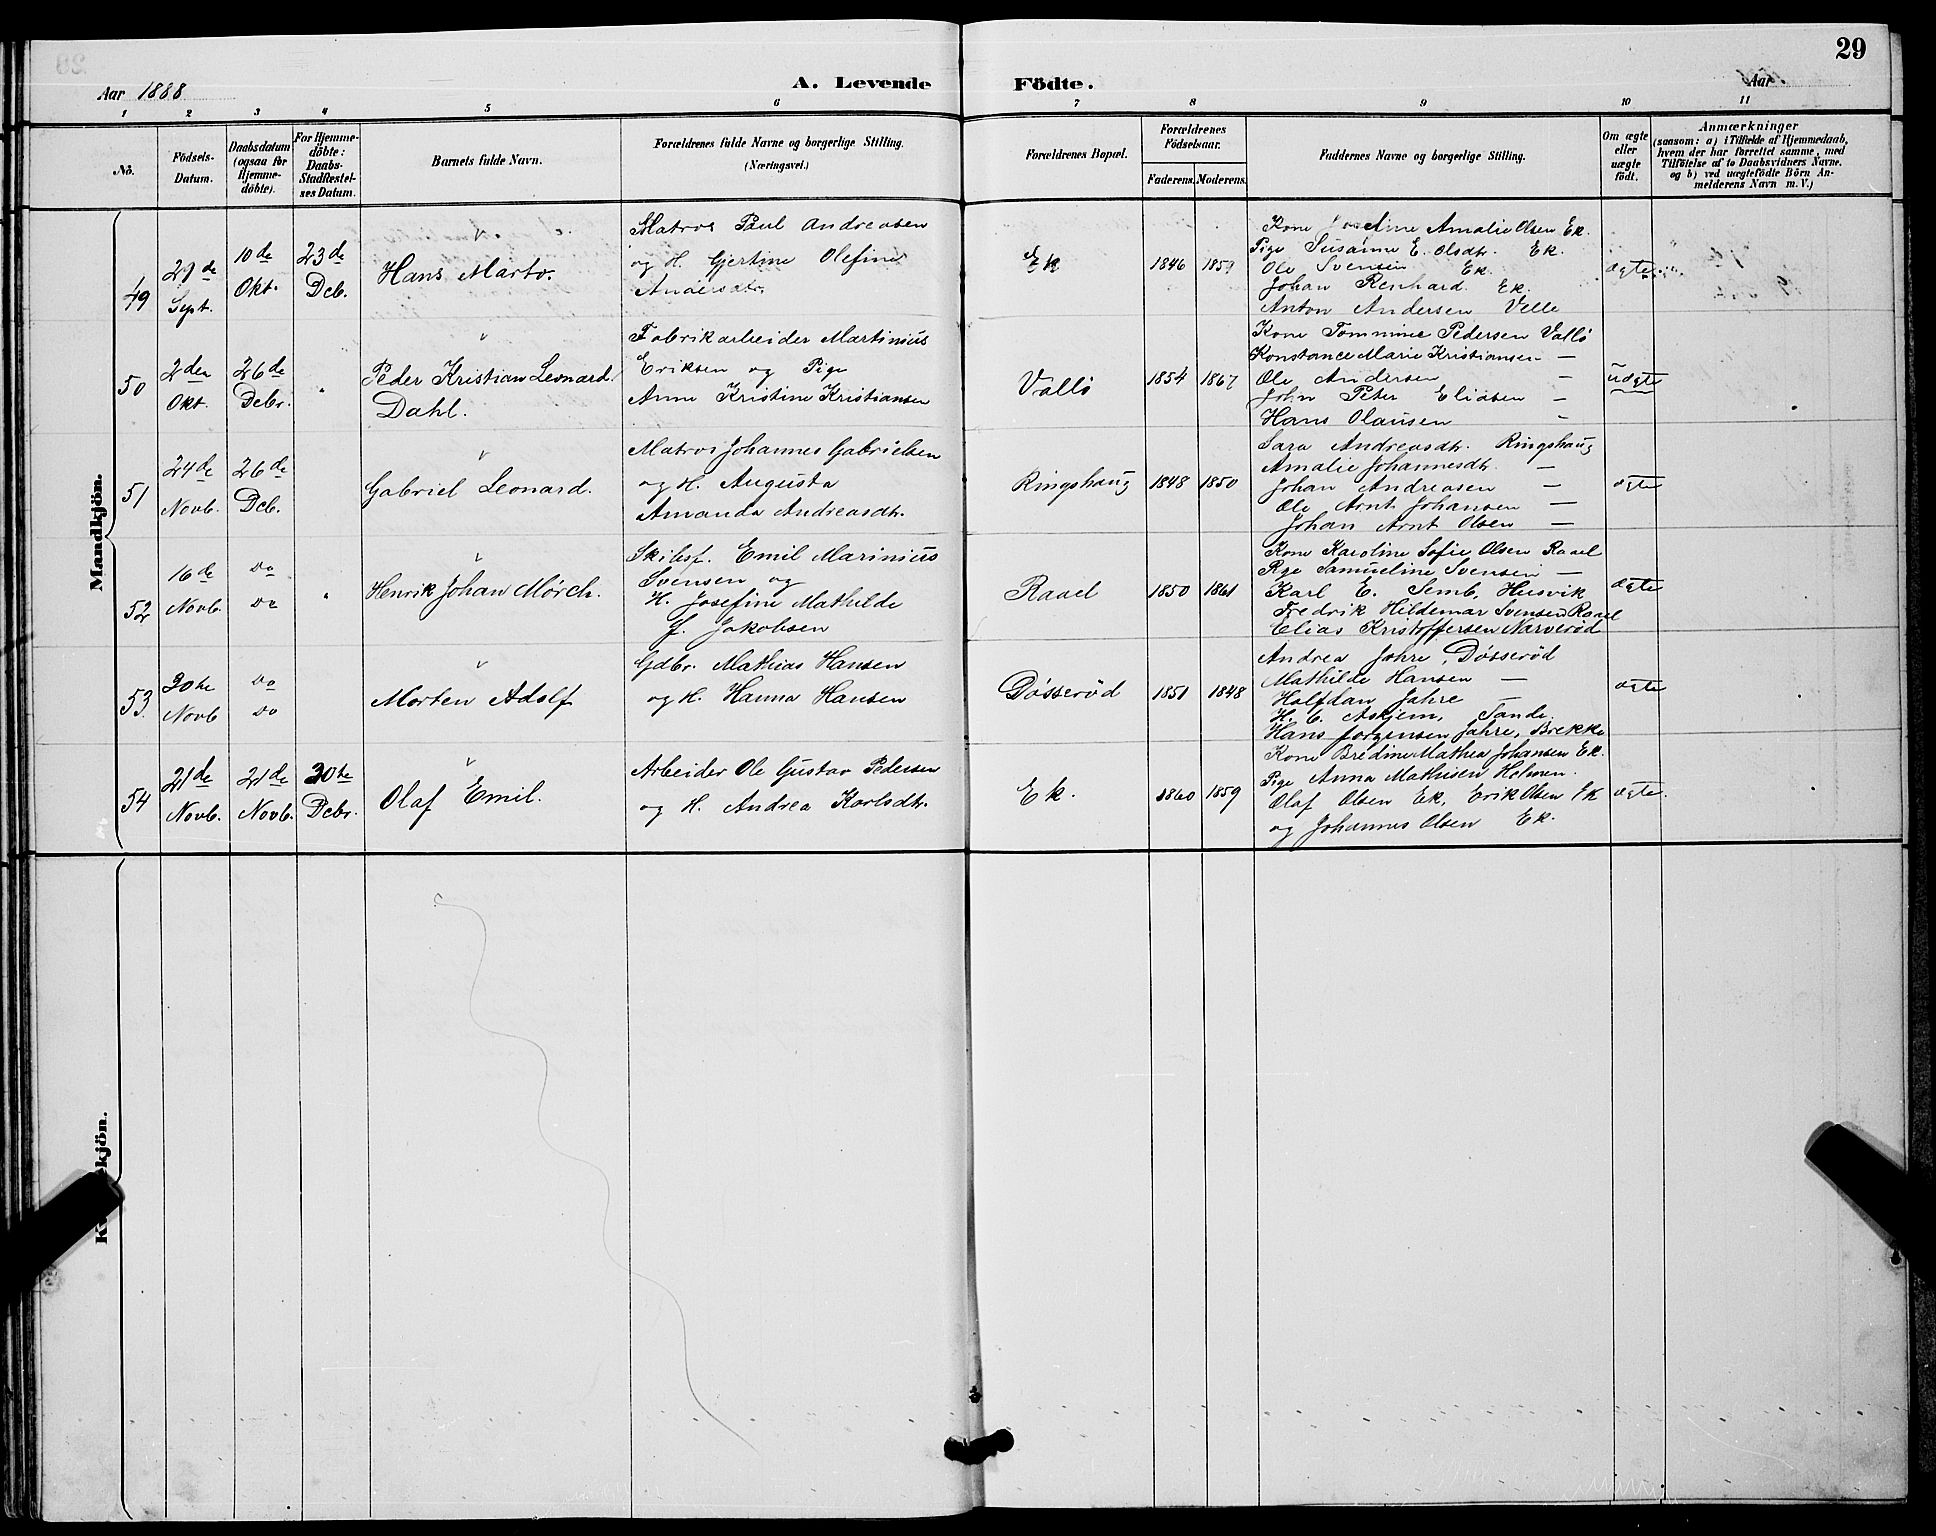 29
Aar 1888
A. Levende Födte.
Aar
1 2 3 4 5 6 7 8 9 10 11
No.
Födsels-Datum.
Daabsdatum (ogsaa for Hjemme-döbte).
For Hjemme-döbte: Daabs-Stadfæstel-ses Datum.
Barnets fulde Navn.
Forældrenes fulde Navne og borgerlige Stilling.
(Næringsvei.)
Forældrenes Bopæl.
Forældrenes Födselsaar.
Faderens. Moderens.
Faddernes Navne og borgerlige Stilling.
Om ægte eller uægte födt.
Anmærkninger
(saasom: a) i Tilfælde af Hjemmedaab, hvem der har forrettet samme, med Tilföielse af to Daabsvidners Navne. og b) ved uægtefödte Börn An-melderens Navn m. V.)
Mandkjön.
49
Sept.
10de Okt.
23de Deb.
Hans Martv.
Matros Paul Andreasen
og H. Gjertine Olefine
Andersdtr.
Ek
1846 1859
Kone Anne Amalie Olsen Ek.
Pige Susanne E. Olsdtr. Ek.
Ole Svensen Ek.
Johan Renhard Ek.
Anton Andersen Velle
ægte
50
2den Okt.
26de Debr.
"
Peder Kristian Leonard
Dahl.
Fabrikarbeider Martinius
Eriksen og Pige
Anne Kristine Kristiansen
Vallö
1854 1867
Kone Tommine Pedersen Vallö
Konstance Marie Kristiansen —
Ole Andersen —
John Peter Eliasen —
Hans Olausen —
uægte
51
24de Novb.
26de Deb.
Gabriel Leonard.
Matros Johannes Gabrielsen
og H. Augusta
Amanda Andreasdtr.
Ringshaug
1848 1850
Sara Andreasdtr. Ringshaug
Amalie Johannesdtr. —
Johan Andreasen —
Ole Arnt Johansen —
Johan Arnt Olsen —
ægte
52
16de Novb.
Do Do
"
Henrik Johan Mörch.
Skibsf. Emil Marinius
Svensen og
H. Josefine Mathilde
f. Jakobsen
Raael
1850 1861
Kone Karoline Sofie Olsen Raael
Pige Samueline Svensen —
Karl E. Semb, Husvik
Fredrik Hildemar Svensen Raael
Elias Kristoffersen Narveröd
ægte
53.
30te Novb
Do Do
Morten Adolf
Gdbr. Mathias Hansen
og H. Hanna Hansen
Dösseröd
1851 1848
Andrea Jahre, Dösseröd
Mathilde Hansen —
Halfdan Jahre —
H. C. Askjem, Sande.
Hans Jörgensen Jahre, Brekke
ægte
54
21de Novb.
21de Novb.
30te Debr.
Olaf Emil.
Arbeider Ole Gustav Pedersen
og H. Andrea Karlsdtr.
Ek.
1860 1859
Kone Bredine Mathea Johansen Ek.
Pige Anna Mathisen Holmen.
Olaf Olsen Ek, Erik Olsen Ek
og Johannes Olsen Ek.
ægte.